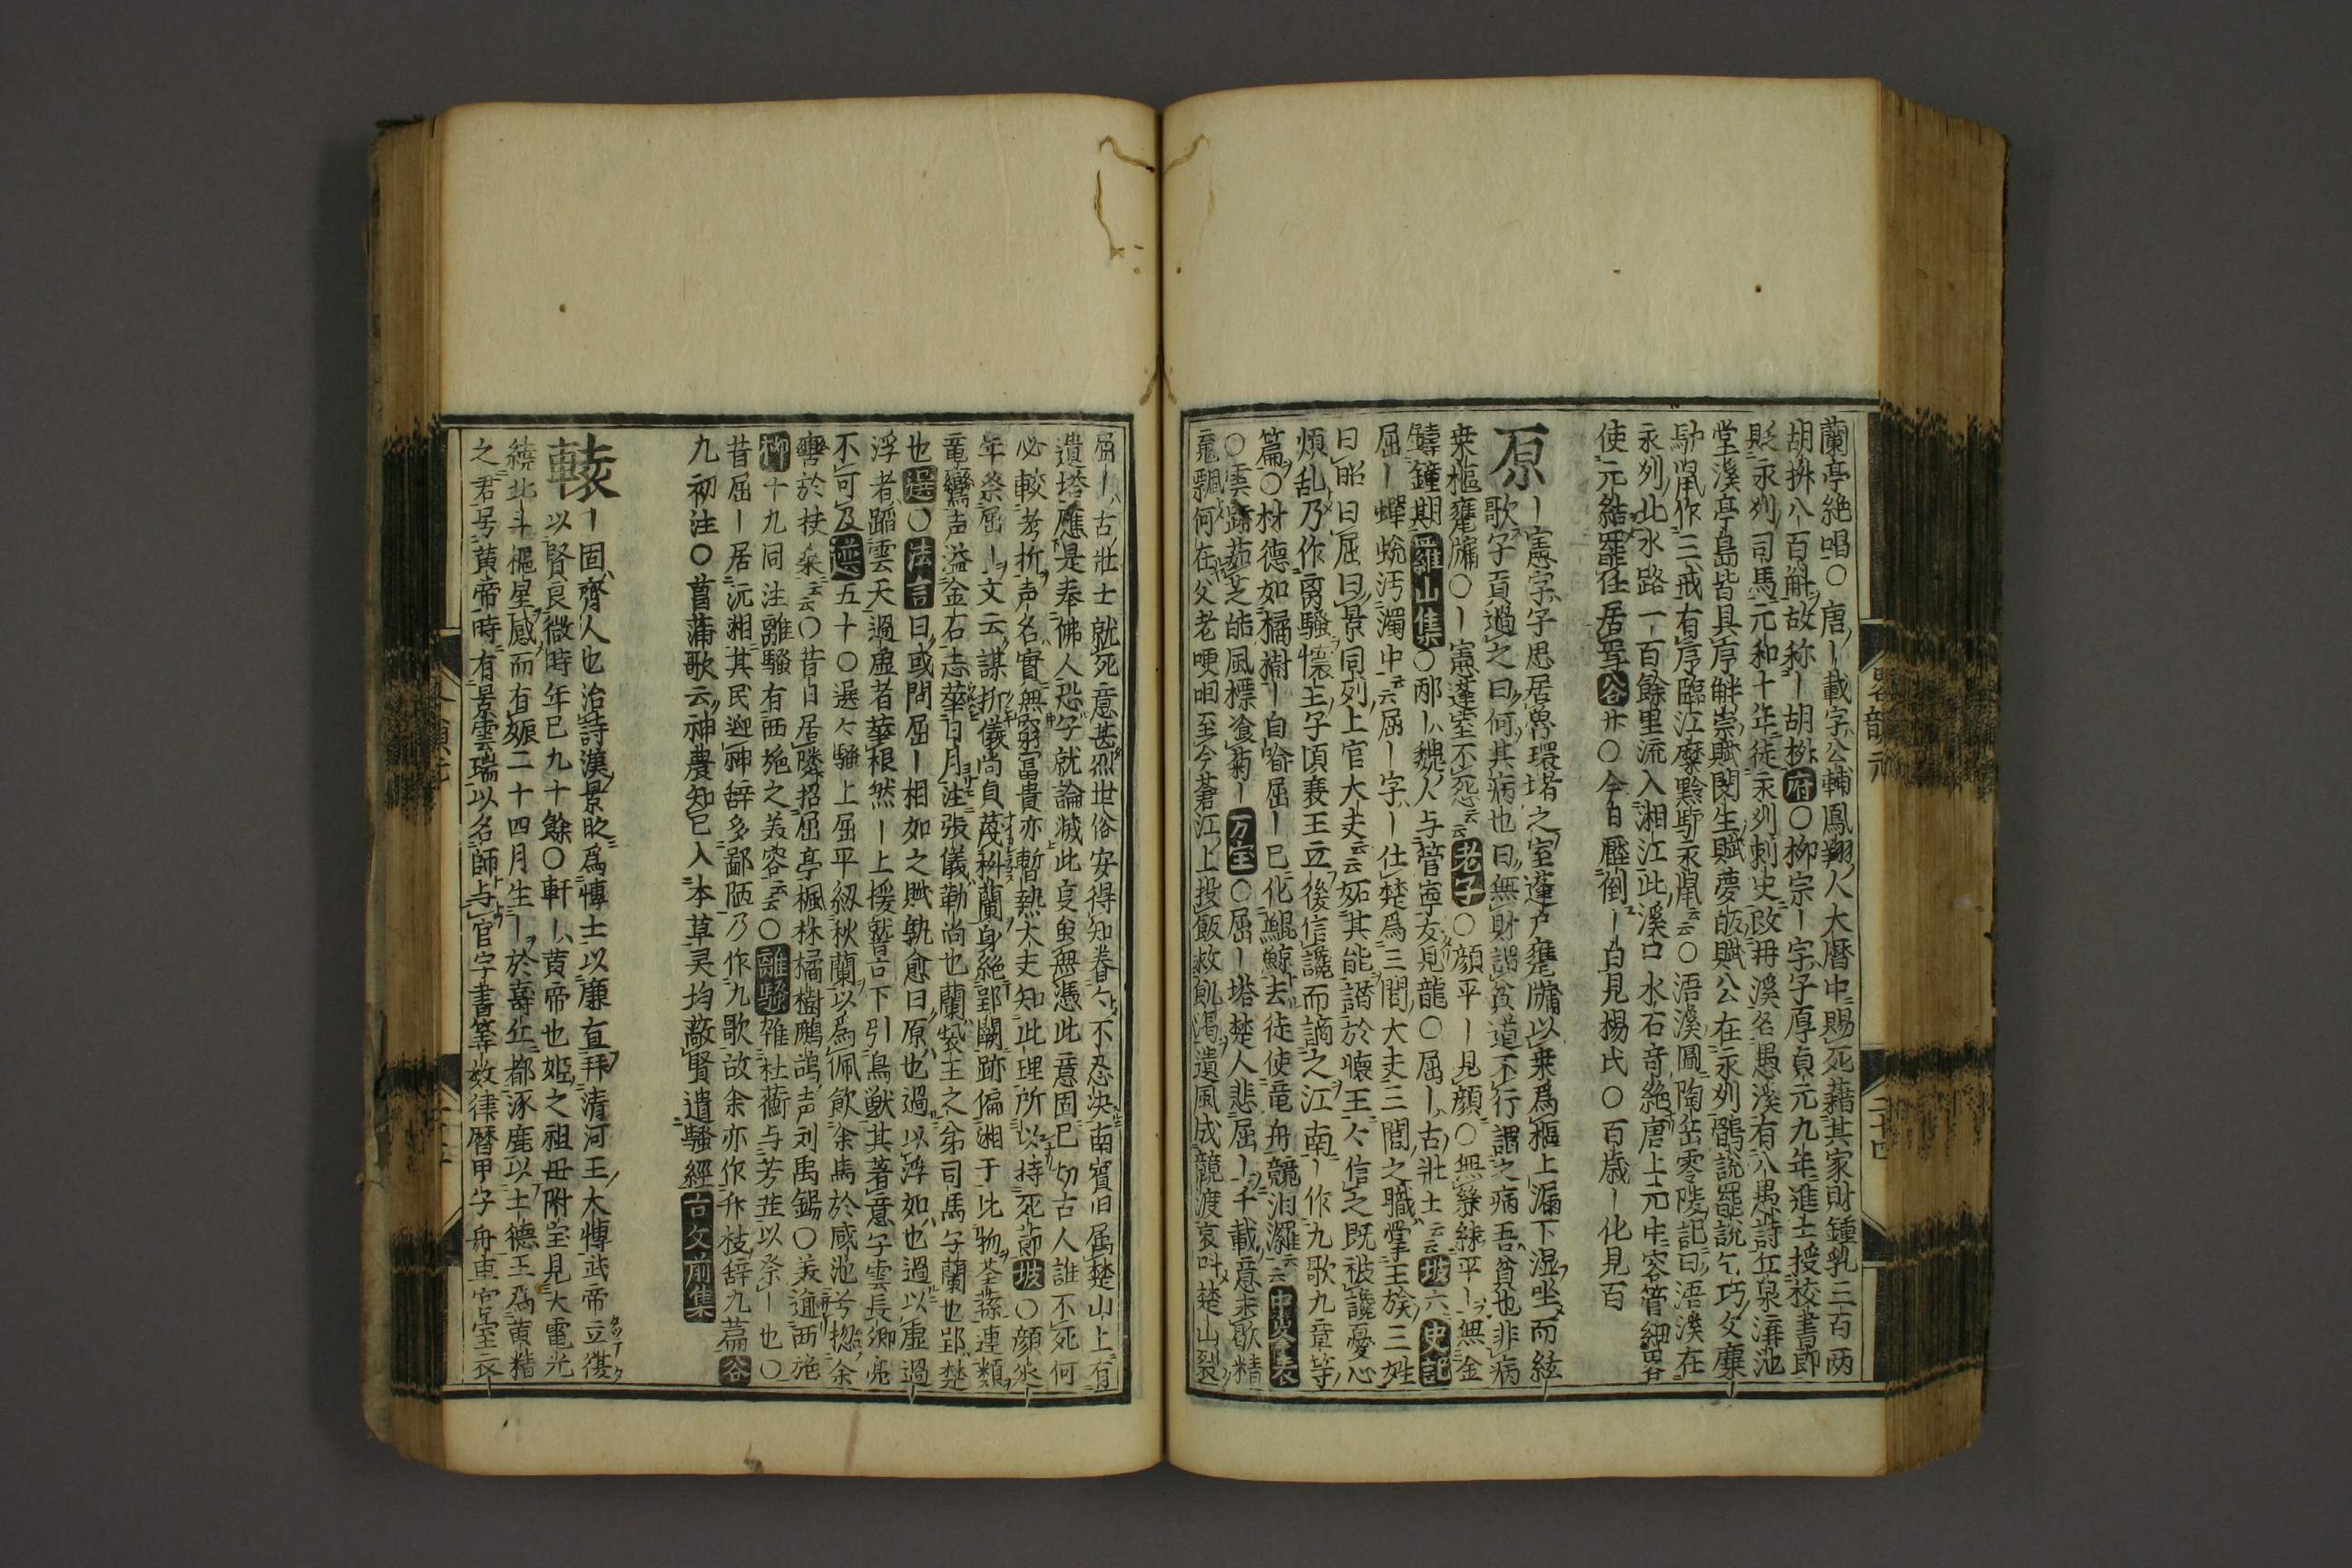 蘭亭絶唱〇唐ー載字公輔鳳翔人大暦中賜死藉其家財鍾乳三百两
胡椒八百斛故称ー胡椒府〇柳宗ー字子厚貞元九年進士授校書郎
貶永州司馬元和十年徒永州刺史改冉溪名愚溪有八愚詩丘泉溝池
堂溪亭島皆具序解崇賦閔生賦夢皈賦公在永州鶻說羆說乞巧文麋
馿䑕作三戒有序臨江麋黔馿永䑕云云〇浯溪圖陶岳零陵記曰浯溪在
永州北水路一百餘里流入湘江此溪口水石奇絶唐上元中容管經畧
使元結罷任居焉谷廾〇今日壓倒ー白見楊氏〇百歳ー化見百
原
ー憲字子思居魯環堵之室蓬户甕牖以桒爲樞上漏下湿坐而絃
歌子貢過之曰何其病也曰無財謂貧道不行謂之病吾貧也非病
桒樞甕牖〇ー憲蓬室不死云云老子〇顔平ー見顔〇無絲綉平ー無金
鑄鐘期羅山集〇邴ー魏人与管寧友見龍〇屈ー古壮士云云坡六史記
屈ー蟬蛻汚濁中云屈ー字ー仕楚爲三閭大夫三閭之職掌王族三姓
曰昭曰屈曰景同列上官大夫云云妬其能譖於懐王々信之既被讒憂心
煩乱乃作离騷懐王子頃襄王立後信讒而謫之江南ー作九歌九章等
篇〇材德如橘樹ー自喩屈ー已化鯤鯨去徒使竜舟競汨灑云云中州集
〇雲蹟茹芝皓風標飡菊ー万宝〇屈ー塔楚人悲屈ー千載意未歇精
竜飄何在父老哽咽至今蒼江上投飯救飢渇遺風成競渡哀叫楚山裂
屈ー古壮士就死意甚烈世俗安得知眷々不忍决南賓旧属楚山上有
遺塔應是奉佛人恐子就論滅此莫虫無憑此意固已切古人誰不死何
必較考折声名實無窮冨貴亦暫熱大夫知此理所以持死節坡〇顔延
年祭屈ー文云謀折儀尚貞蔑椒蘭身絶郢闕跡偏湘干比物荃蓀連類
竜鸞声溢金石志華日月注張儀勒尚也蘭懐王之弟司馬子蘭也郢楚
也選〇法言曰或問屈ー相如之賦孰愈曰原也過以浮如也過以虚過
浮者蹈雲天過虚者華根然ー上援䇿吉下引鳥獸其著意子雲長卿亮
不可及迹五十〇選々騷上屈平紉秋蘭以為佩飲余馬於咸池兮惣余
轡於扶桒云云〇昔日居隣招屈亭楓林橘樹鷓鴣声刘禹錫〇美迪西施
柳十九同注離騷有西施之美容云云〇離騷雑杜蘅与芳芷以祭ー也〇
昔屈ー居沅湘其民迎神辞多鄙陋乃作九歌故余亦作升枝辞九篇谷
九初注〇菖蒲歌云神農知已入本草灵均蔽賢遺騷經古文前集
轅
ー固齊人也治詩漢景时爲愽士以廉直拜清河王大愽武帝立復
以賢良徴時年已九十餘〇軒ー黄帝也姫之祖毋附宝見大電光
繞北斗樞星感而有娠二十四月生ー於壽丘都涿鹿以土德王爲黄精
之君号黄帝時有景雲瑞以名師与官字書筭数律暦甲子舟車宮室衣